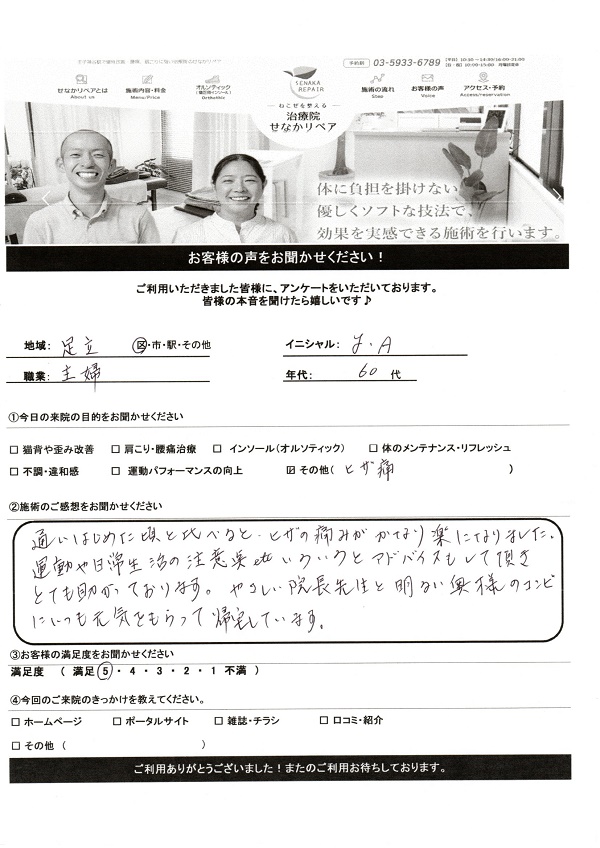 予約制 03-5933-6789 【平日】10:30～14:30/16:00~21:00
せなかリペアとは 施術内容・料金 オルソティック 施術の流れ お客様の声 アクセス・予約
(矯正用インソール)
About us Menu/Price Orthothic Step Voice Access/reservation
SENAKA
REPAIR
ねこぜを整える
治療院
せなかリペア
体に負担を掛けない
優しくソフトな技法で、
効果を実感できる施術を行います。
お客様の声をお聞かせください！
ご利用いただきました皆様に、アンケートをいただいております。
皆様の本音を聞けたら嬉しいです♪
地域: 足立 区・市・駅・その他 イニシャル: Y.A
職業: 主婦 年代: 60 代
①今日の来院の目的をお聞かせください
□ 猫背や歪み改善 □ 肩こり・腰痛治療 □ インソール(オルソティック) □ 体のメンテナンス・リフレッシュ
□ 不調・違和感 □ 運動パフォーマンスの向上 ☑ その他( ヒザ痛 )
②施術のご感想をお聞かせください
通いはじめた頃と比べると、ヒザの痛みがかなり楽になりました。
運動や日常生活の注意点etcいろいろとアドバイスもして頂き
とても助かっております。やさしい院長先生と明るい奥様のコンビ
にいつも元気をもらって帰宅しています。
③お客様の満足度をお聞かせください
満足度 ( 満足 5・4・3・2・1 不満 )
④今回のご来院のきっかけを教えてください。
□ ホームページ □ ポータルサイト □ 雑誌・チラシ □ 口コミ・紹介
□ その他 ( )
ご利用ありがとうございました！またのご利用お待ちしております。